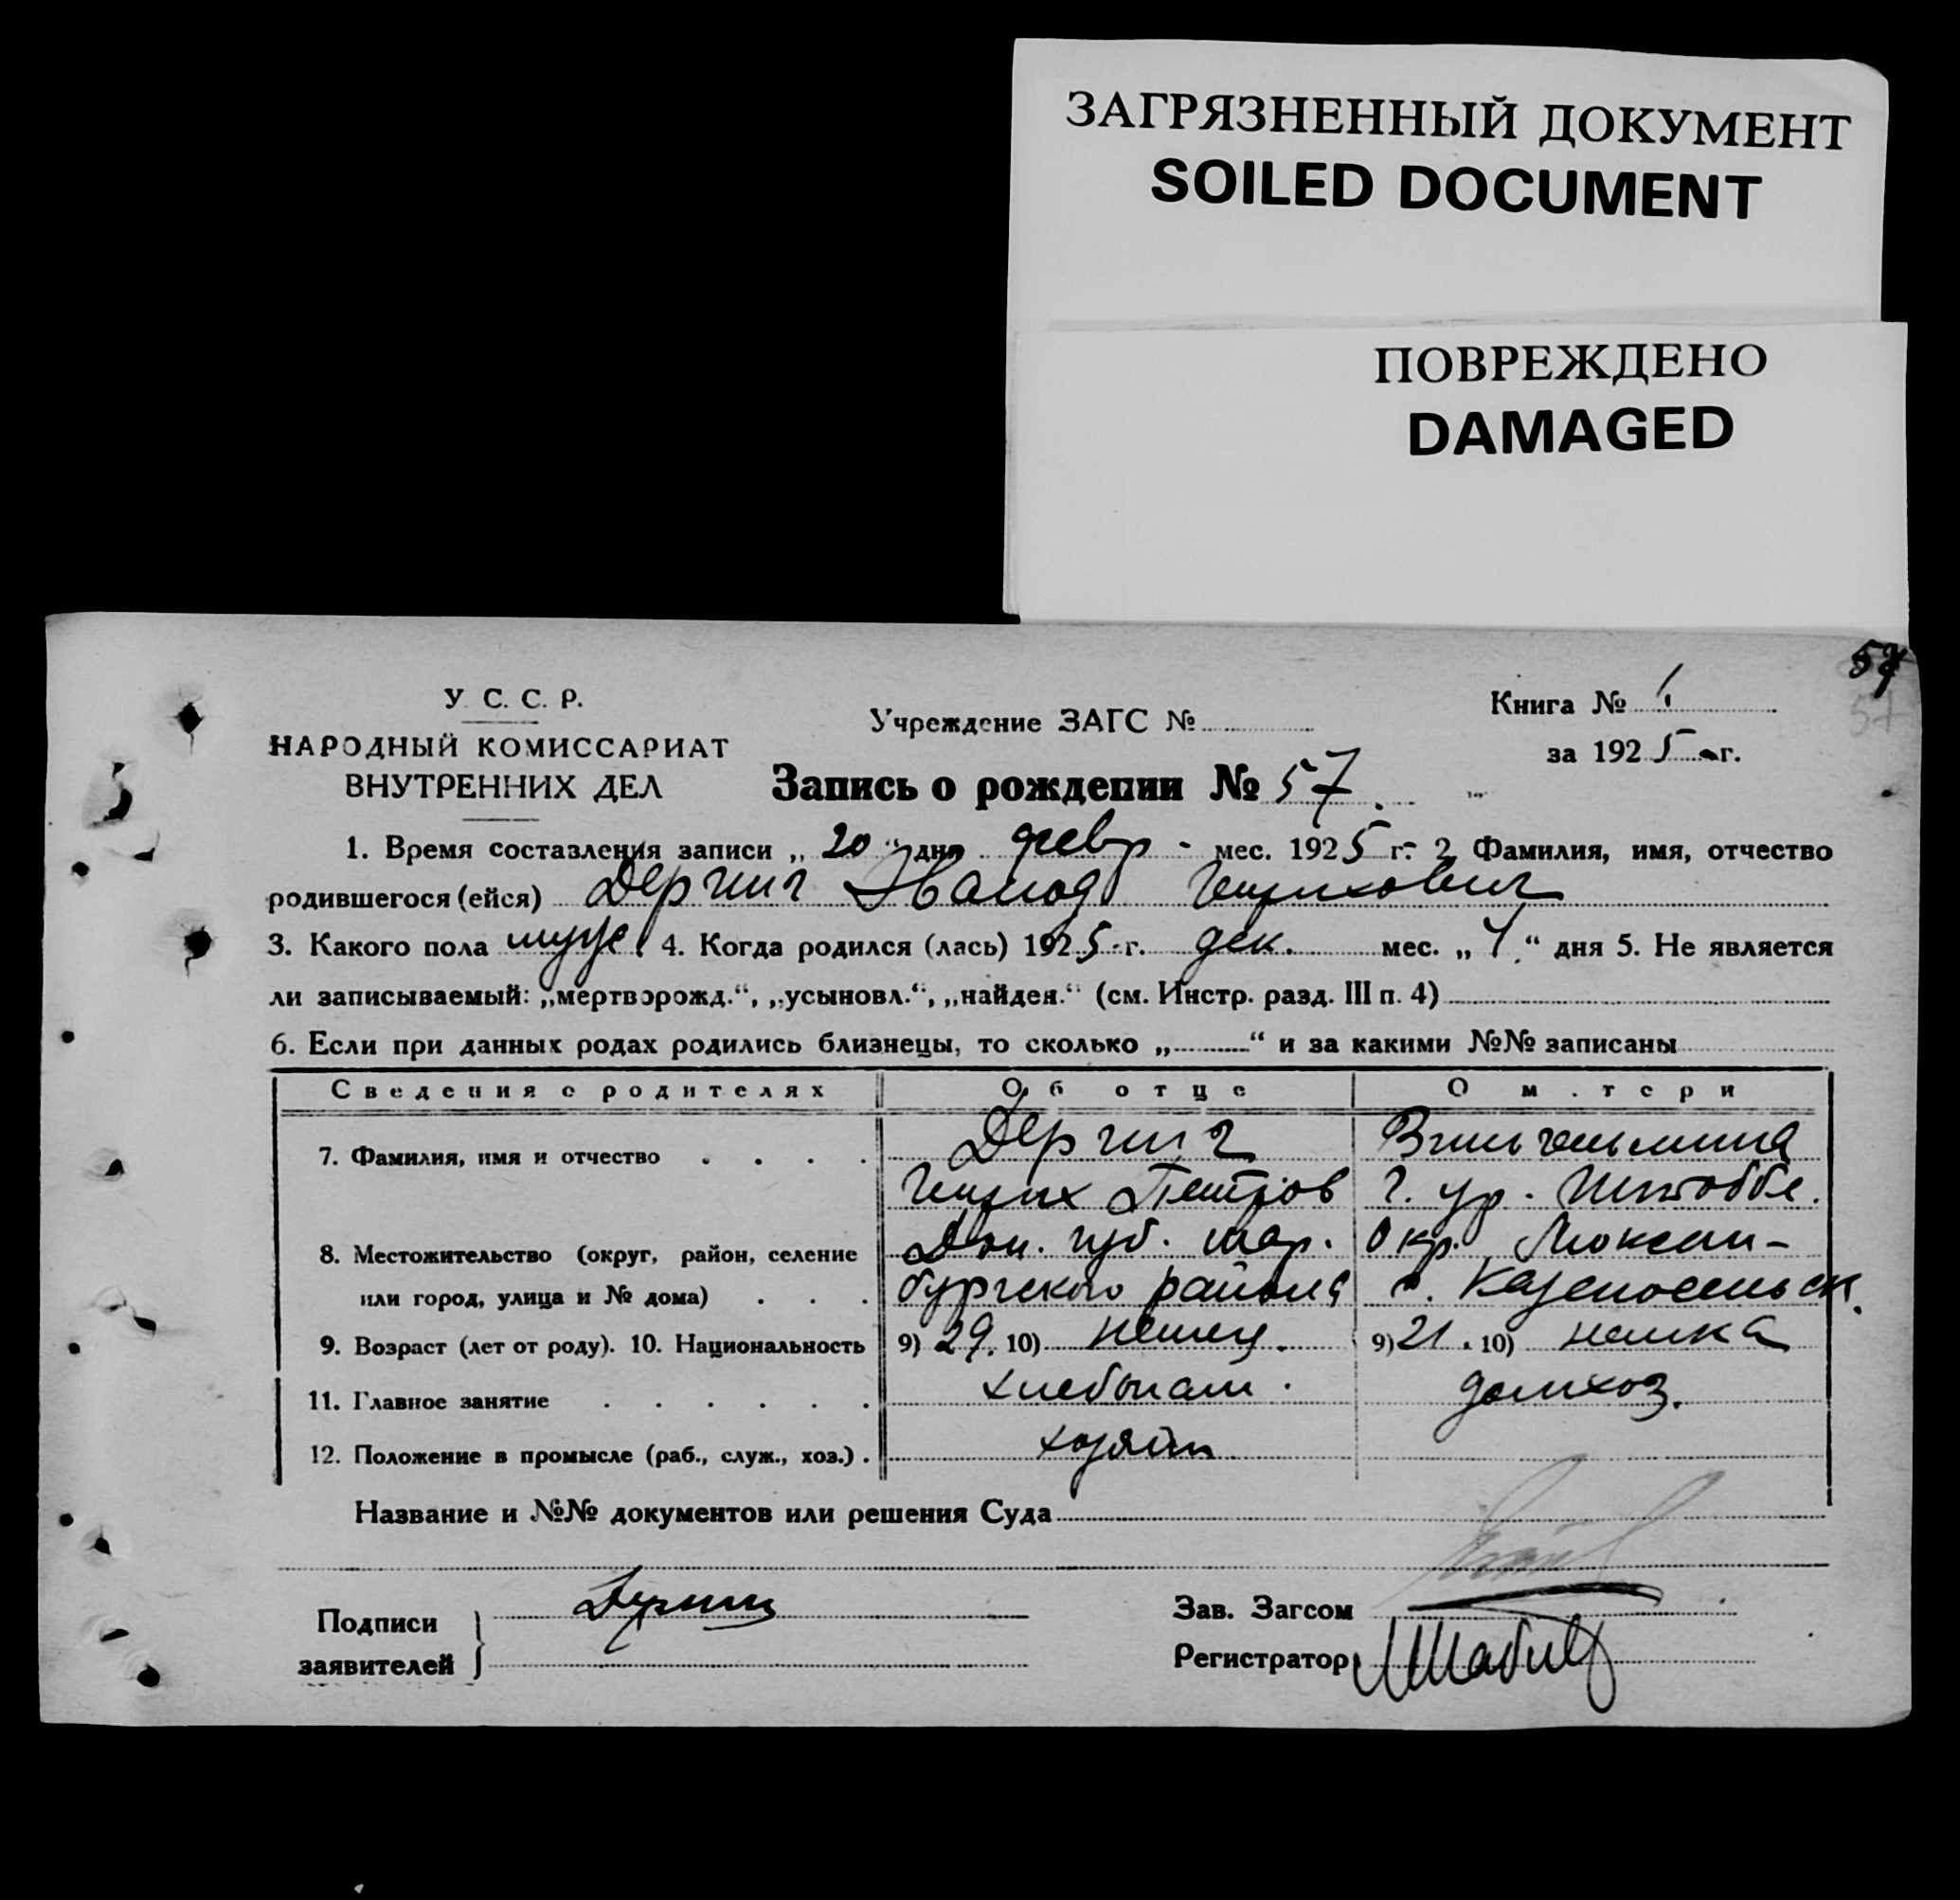 ЗАГРЯЗНЕННЫЙ ДОКУМЕНТ
SOILED DOCUMENT
ПОВРЕЖДЕНО
DAMAGED
57
57
У. С. С. Р.
НАРОДНЫЙ КОМИССАРИАТ
ВНУТРЕННИХ ДЕЛ
Учреждение ЗАГС №
Книга № 1
за 1925 г.
Запись о рождении № 57
1. Время составления записи „20“ дня февр мес. 1925 г. 2. Фамилия, имя, отчество
родившегося (ейся) Дергинг
3. Какого пола муж. 4. Когда родился (лась) 1925 г. дек. мес. „4“ дня 5. Не является
ли записываемый: „мертворожд.“, „усыновл.“, „найден.“ (см. Инстр. разд. III п. 4)
6. Если при данных родах родились близнецы, то сколько „“ и за какими №№ записаны
Сведения о родителях Об отце О матери
7. Фамилия, имя и отчество Дергинг Вильгельмина
Генрих Петров г. ур. Штоббе.
8. Местожительство (округ, район, селение Дон. губ. мар. Окр. Люксем-
или город, улица и № дома) бургского района
9. Возраст (лет от роду). 10. Национальность 9) 29. 10) немец. 9) 21. 10) немка
11. Главное занятие хлебопаш. домхоз.
12. Положение в промысле (раб., служ., хоз.) хозяин
Название и №№ документов или решения Суда
Подписи
заявителей
Зав. Загсом
Регистратор